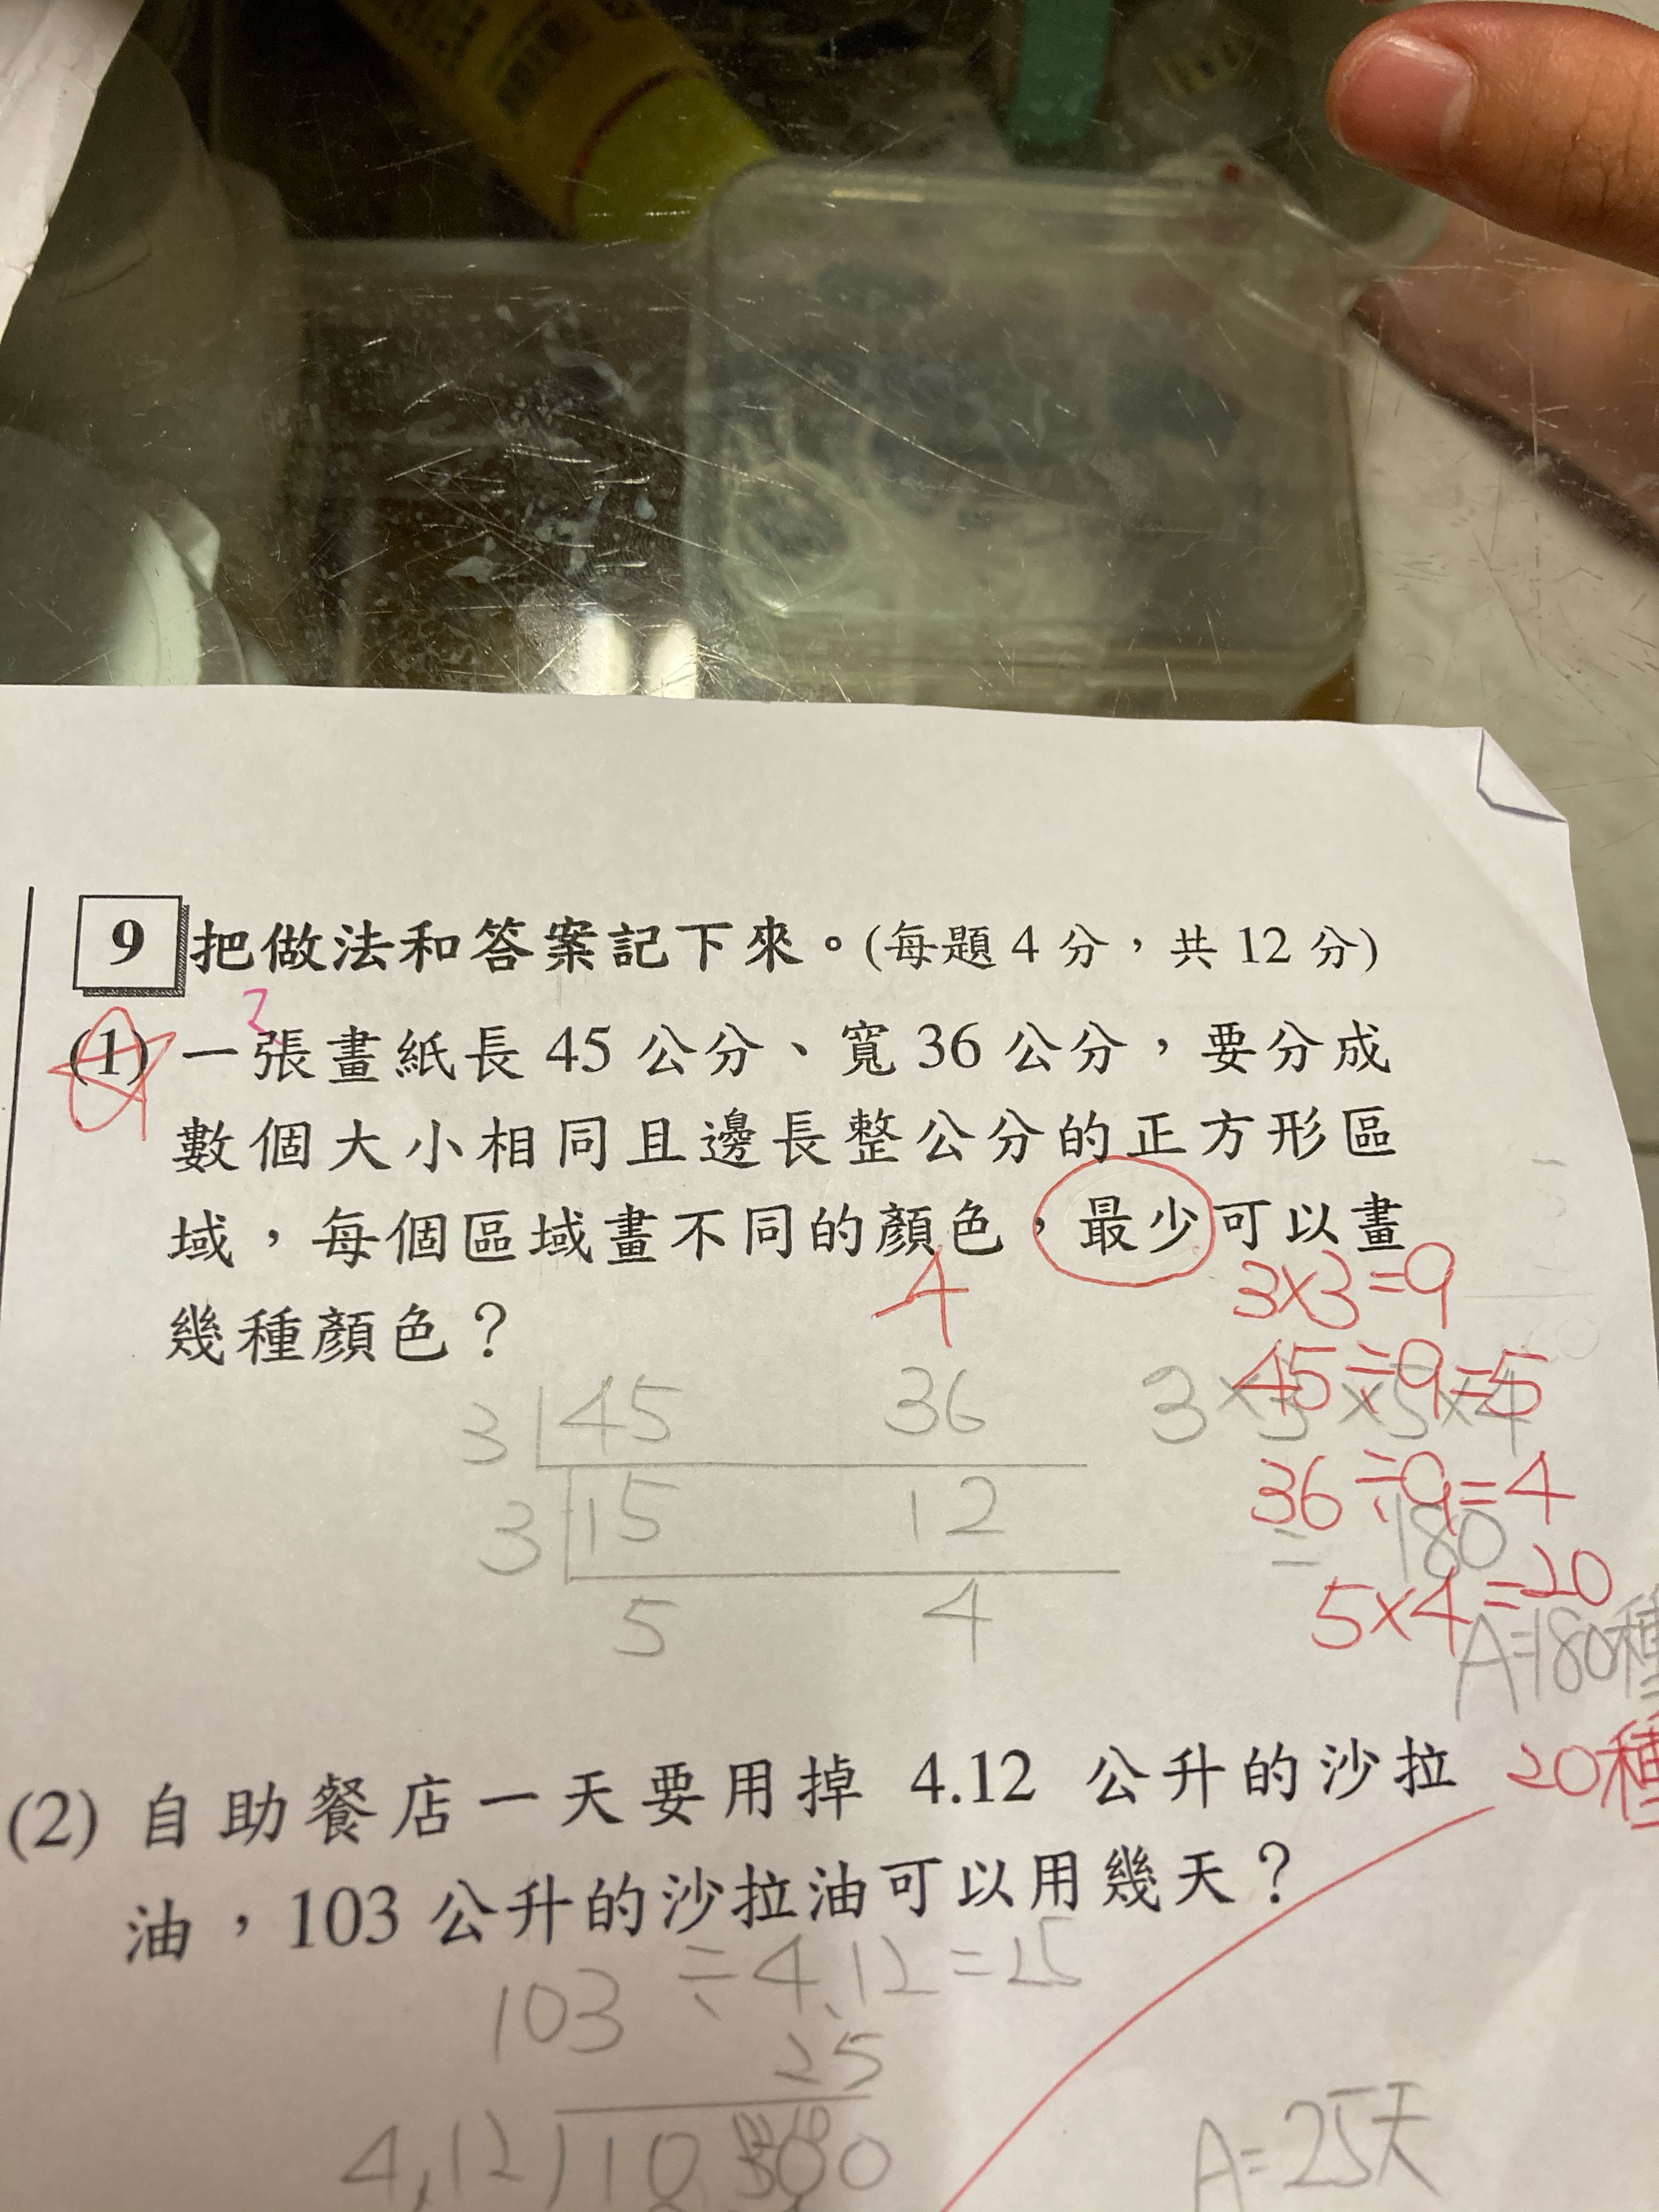 9 把做法和答案記下來。(每題 4 分，共 12 分)
(1) 一張畫紙長 45 公分、寬 36 公分，要分成
數個大小相同且邊長整公分的正方形區
域，每個區域畫不同的顏色，最少可以畫
幾種顏色？
3×3=9
45÷9=5
36÷9=4
5×4=20
20種
3 45 36
3 15 12
5 4
3×3×5×4
= 180
A=180種
(2) 自助餐店一天要用掉 4.12 公升的沙拉
油，103 公升的沙拉油可以用幾天？
103 ÷ 4.12 = 25
25
4.12
A=25天